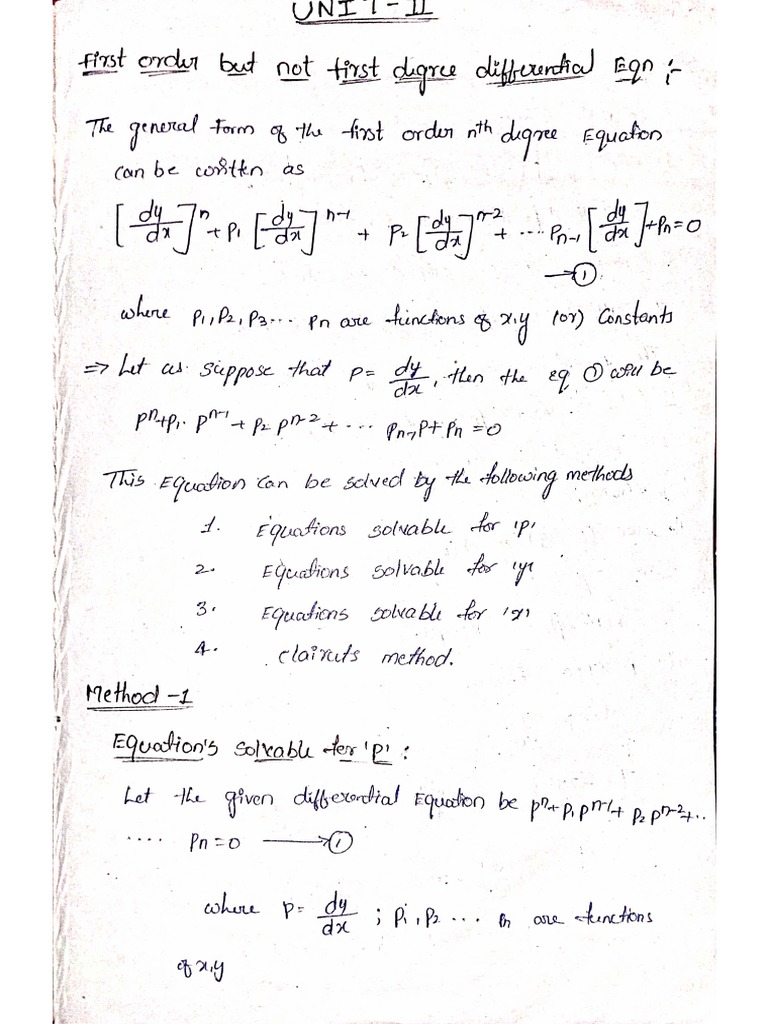 UNIT-II
First order but not first degree differential Eqn :-
The general form of the first order nth degree Equation
can be written as
[dy/dx]^n + P1 [dy/dx]^n-1 + P2 [dy/dx]^n-2 + .... Pn-1 [dy/dx] + Pn = 0
→ ①
where P1, P2, P3... Pn are functions of x,y (or) Constants
⇒ Let us suppose that P = dy/dx, then the eq ① will be
P^n + P1. P^n-1 + P2 P^n-2 + ... Pn-1 P + Pn = 0
This Equation can be solved by the following methods
1. Equations solvable for 'p'
2. Equations solvable for 'y'
3. Equations solvable for 'x'
4. Clairuts method.
Method -1
Equation's Solvable for 'P' :
Let the given differential Equation be P^n + P1 P^n-1 + P2 P^n-2 + ..
.... Pn = 0 → ①
where P = dy/dx ; P1, P2 ... Pn are functions
of x,y